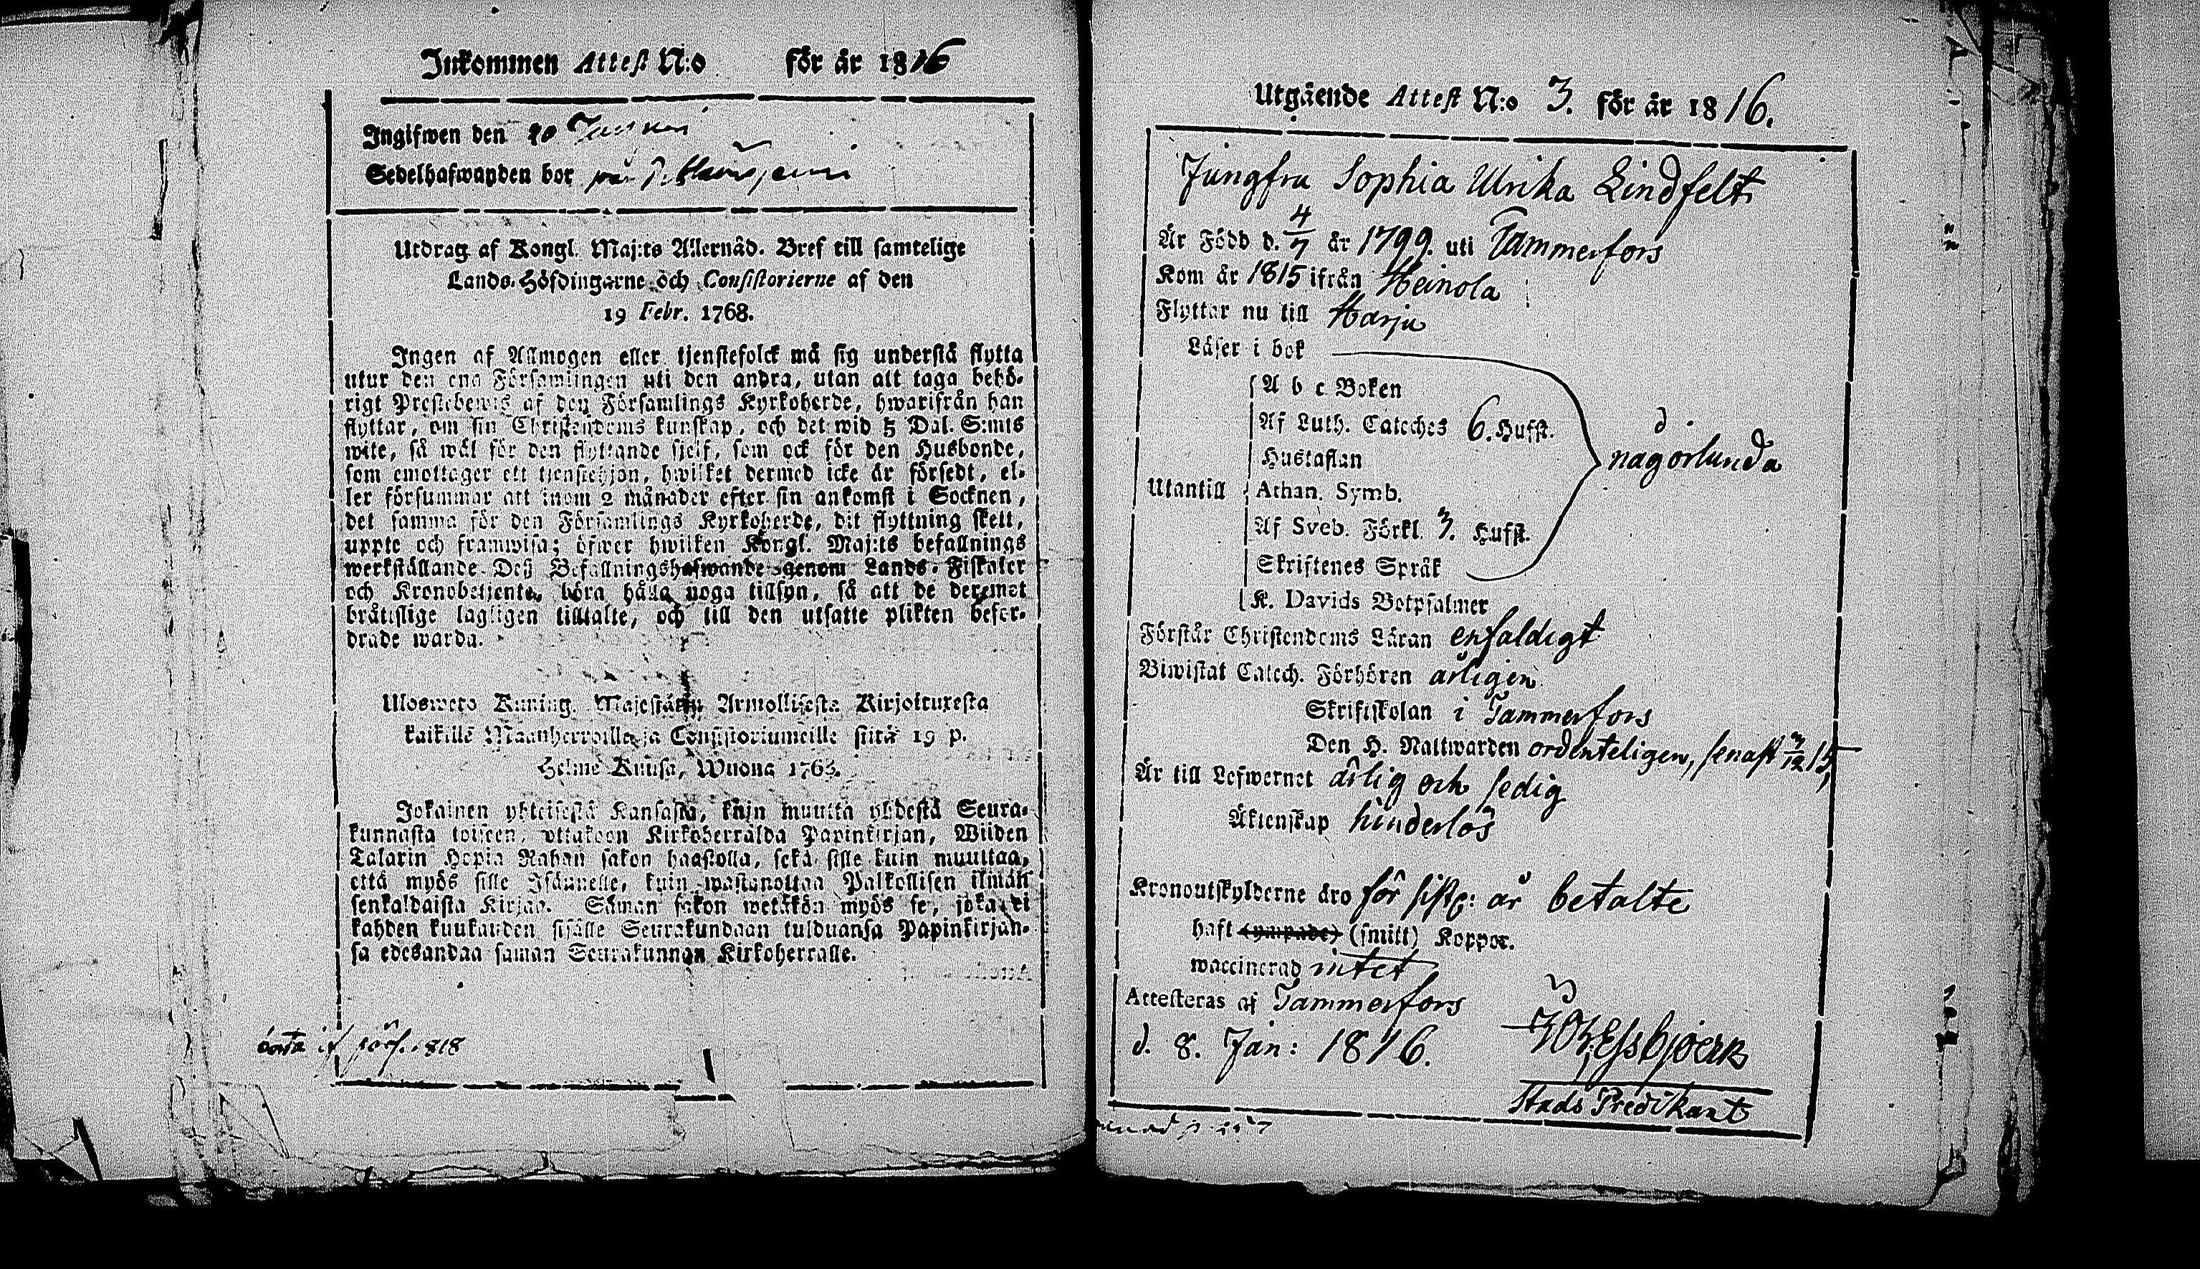 Inkommen Attest N:o för år 1816
Ingifwen den 20
Sedelhafwanden bor på
Utdrag af Kongl. Maj:ts Allernåd. Bref till samtelige
Lands-Höfdingarne och Consistorierne af den
19 Febr. 1768.
Ingen af Allmogen eller tjenstefolck må sig understå flytta
utur den ena Församlingen uti den andra, utan att taga behö-
rigt Prestebewis af den Församlings Kyrkoherde, hwarifrån han
flyttar, om sin Christendoms kunskap, och det wid 5 Dal. S:mts
wite, så wäl för den flyttande sjelf, som ock för den Husbonde,
som emottager ett tjenstehjon, hwilket dermed icke är försedt, el-
ler försummar att inom 2 månader efter sin ankomst i Socknen,
det samma för den Församlings Kyrkoherde, dit flyttning skett,
uppte och framwisa; öfwer hwilken Kongl. Maj:ts befallnings
werkställande Den Befallningshafwande genom Lands-Fiskaler
och Kronobetjente, böra hålla noga tillsyn, så att de deremot
bråtislige lagligen tilltalte, och till den utsatte plikten befor-
drade warda.
Ulosweto Kuning. Majestätin Armollisesta Kirjoituxesta
kaikille Maanherroille ja Consistoriumeille siitä 19 p.
Helme Kuusa, Wuona 1768.
Jokainen yhteisestä Kansasta, kuin muutta yhdestä Seura-
kunnasta toiseen, ottakoon Kirkoherralda Papinkirjan, Wiiden
Talarin Hopia Rahan sakon haastolla, sekä sille kuin muuttaa,
että myös sille Isännelle, kuin wastanottaa Palkollisen ilman
senkaldaista Kirjaa. Saman sakon wetäkön myös se, joka ei
kahden kuukauden sisälle Seurakundaan tulduansa Papinkirjan-
sa edesandaa saman Seurakunnan Kirkoherralle.
1818
Utgående Attest N:o 3. för år 1816.
Jungfru Sophia Ulrika Lindfelt
Är Född d. 4/7 år 1799. uti Tammerfors
Kom år 1815 ifrån Heinola
Flyttar nu till Harju
Läser i bok
A b c Boken
Af Luth. Cateches 6. Hufst.
Hustaflan
någorlunda
Utantill Athan. Symb.
Af Sveb. Förkl. 3. Hufst.
Skriftenes Språk
K. Davids Botpsalmer
Förstår Christendoms Läran enfaldigt
Biwistat Catech. Förhören årligen
Skriftskolan i Tammerfors
Den H. Nattwarden ordenteligen, senast 3/12 15,
Är till Lefwernet ärlig och sedig
Äktenskap hinderlös
Kronoutskylderne äro för sistl: år betalte
haft (smitt) Koppor.
waccinerad intet
Attesteras af Tammerfors
d. 8. Jan: 1816.
Stads Predikant